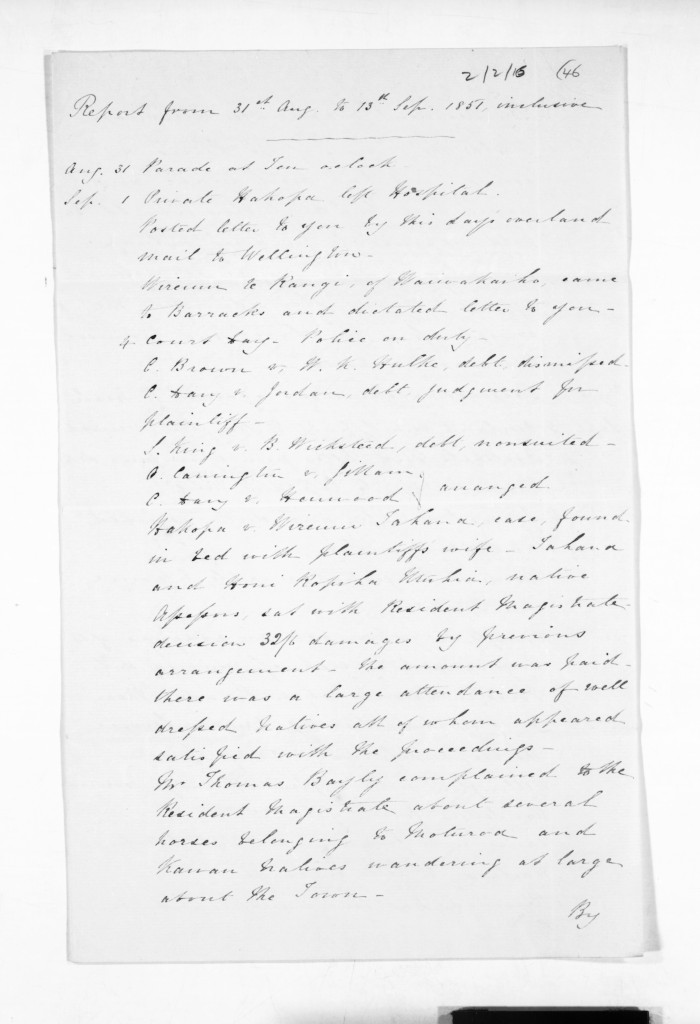 2/2/15 (46
Report from 31st Aug. to 13th Sep. 1851, inclusive
Aug. 31 Parade at Ten oclock
Sep. 1 Private Hakopa left Hospital.
Posted letter to you by this days overland
mail to Wellington-
Wiremu te Rangi, of Waiwakaiho, came
to Barracks and dictated letter to you-
4. Court day- Police on duty-
C. Brown v. H. K. Hulke, debt, dismissed-
C. Davy v. Jordan, debt, judgment for
plaintiff-
S. King v. B. Wicksteed, debt, nonsuited-
O. Carrington v. Gillham
C. Davy v. Henwood } arranged
Hakopa v. Wiremu Tahana, case, found
in bed with plaintiffs wife- Tahana
and Honi Ropiha, native
Assessors, sat with Resident Magistrate-
decision 32/6 damages by previous
arrangement- the amount was paid-
there was a large attendance of well
dressed Natives all of whom appeared
satisfied with the proceedings-
Mr Thomas Bayly complained to the
Resident Magistrate about several
horses belonging to Moturoa and
Kawau Natives wandering at large
about the Town-
By